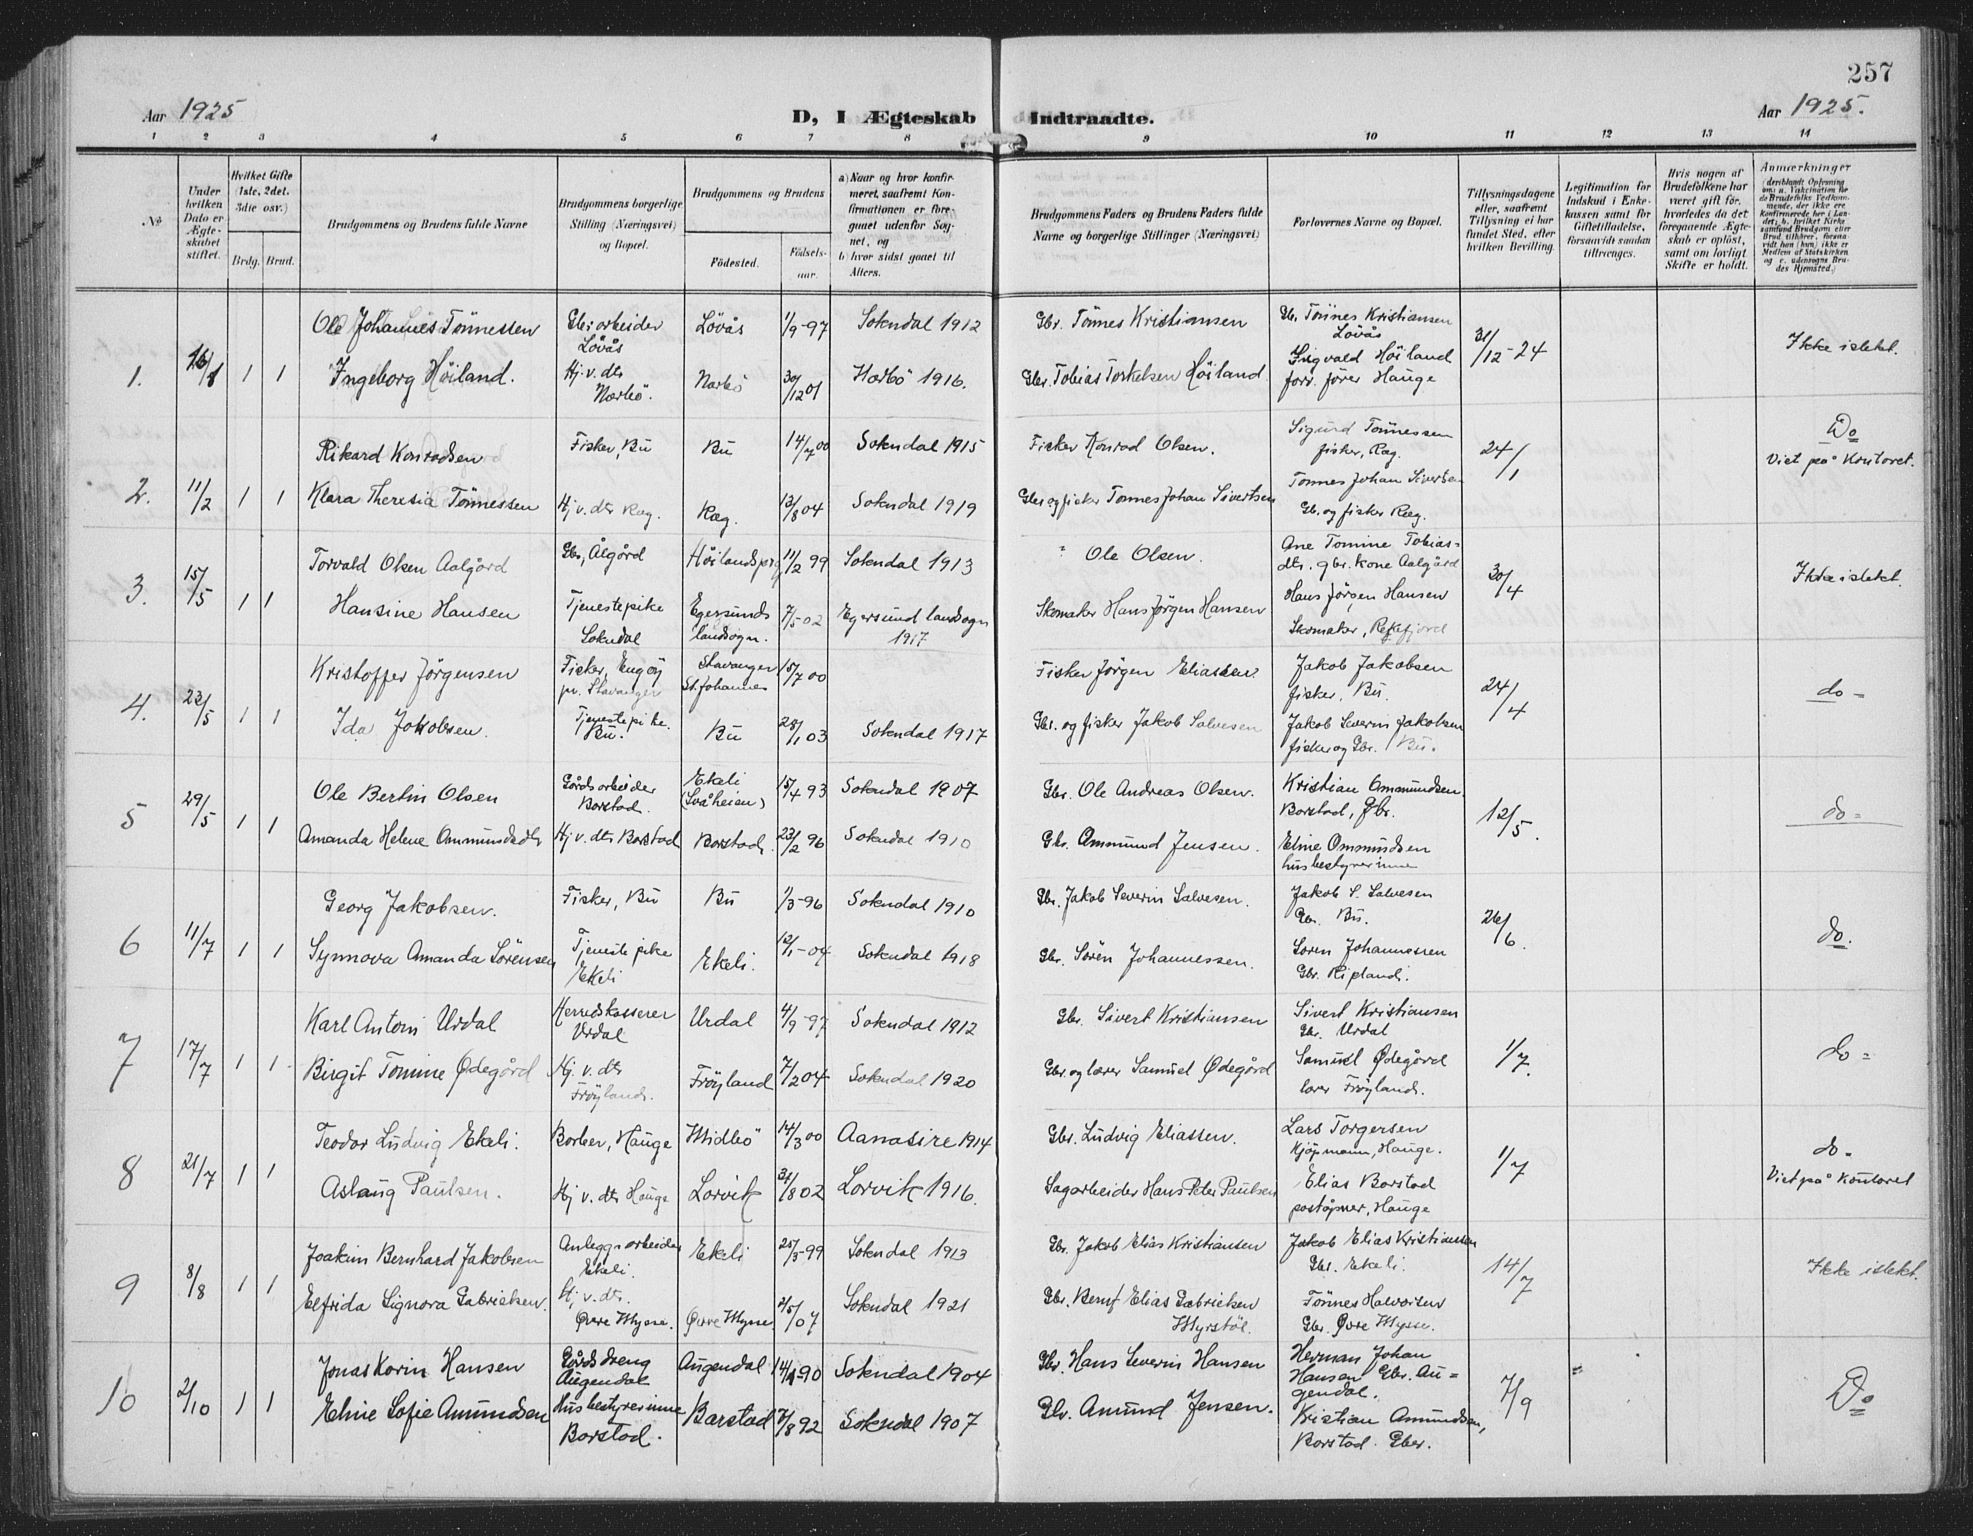 257
Aar 1925
D, I Ægteskab Indtraadte.
Aar 1925.
1 2 3 4 5 6 7 8 9 10 11 12 13 14
№
Under hvilken Dato er Ægteskabet stiftet.
Hvilket Gifte (1ste, 2det, 3die osv.)
Brdg. Brud.
Brudgommens og Brudens fulde Navne
Brudgommens borgerlige Stilling (Næringsvei) og Bopæl.
Brudgommens og Brudens
Fødested.
Fødselsaar.
a) Naar og hvor konfirmeret, saafremt Konfirmationen er foregaaet udenfor Sognet, og
b) hvor sidst gaaet til Alters.
Brudgommens Faders og Brudens Faders fulde Navne og borgerlige Stillinger (Næringsvei)
Forlovernes Navne og Bopæl.
Tillysningsdagene eller, saafremt Tillysning ei har fundet Sted, efter hvilken Bevilling.
Legitimation for Indskud i Enkekassen samt for Giftetilladelse, forsaavidt saadan tiltrænges.
Hvis nogen af Brudefolkene har været gift før, hvorledes da det foregaaende Ægteskab er opløst, samt om lovligt Skifte er holdt.
Anmærkninger
1. 16/1 1 1
Ole Johannes Tönnessen Gbr. arbeider Lövås Lövås 1/9-97 Sokndal 1912 Gbr. Tönnes Kristiansen Gb. Tönnes Kristiansen Lövås 31/12-24 Ikke i slekt.
Ingeborg Höiland. Hj. v. dtr Nærbö. Nærbö 30/12 01 Nærbö 1916. Gbr. Tobias Torkelsen Höiland Sigvald Höiland forr. fører Hauge
2. 11/2 1 1
Rikard Konradsen Fisker, Bu Bu 14/7 00 Sokndal 1915 Fisker Konrad Olsen. Sigurd Tönnessen fisker, Ræg. 24/1 Do Viet på Kontoret.
Klara Theresia Tönnessen Hj. v. dtr Ræg. Ræg. 13/8 04 Sokndal 1919 Gbr. og fisker Tönnes Johan Sivertsen Tönnes Johan Sivertsen Gb. og fisker Ræg.
3. 15/5 1 1
Torvald Olsen Aalgård Gbr, Ålgård Höilands prg 11/2 99 Sokndal 1913 " Ole Olsen. Ane Tomine Tobiasdtr. gbr. kone Aalgård 30/4 Ikke i slekt.
Hansine Hansen Tjenestepike Sokndal Egersunds landsogn. 7/5 02 Egersund landsogn 1917 Skomaker Hans Jørgen Hansen Hans Jørgen Hansen Skomaker, Rekefjord
4. 23/5 1 1
Kristoffer Jørgensen Fisker, Engøy pr. Stavanger Stavanger St. Johannes 15/7 00 Fisker Jörgen Eliassen Jakob Jakobsen fisker, Bu. 24/4 do-
Ida Jakobsen. Tjenestepike. Bu. Bu 28/1 03 Sokndal 1917 Gbr. og fisker Jakob Salvesen Jakob Severin Jakobsen fisker og Gbr. Bu.
5 29/5 1 1
Ole Bertin Olsen Gårdsarbeider Barstad. Ekeli (Svåheien) 15/4 93 Sokndal 1907 Gbr. Ole Andreas Olsen. Kristian Ommundsen. Barstad, Gbr. 12/5. do=
Amanda Helene Ommundsdtr Hj. v. dtr Barstad Barstad. 23/2 96 Sokndal 1910 Gbr. Ommund Jensen. Eline Omundsen husbestyrerinne
6 11/7 1 1
Georg Jakobsen. Fisker, Bu Bu 1/3-96 Sokndal 1910 Gbr. Jakob Severin Salvesen. Jakob S. Salvesen Gb. Bu. 26/6. do.
Synnova Amanda Sörensen Tjenestepike Ekeli Ekeli. 12/1-04 Sokndal 1918 Gbr. Sören Johannessen. Sören Johannessen Gbr. Ripland.
7 17/7 1 1
Karl Antoni Urdal Herredskasserer Urdal Urdal 4/9-97 Sokndal 1912 Gbr. Sivert Kristiansen Sivert Kristiansen Gbr. Urdal 1/7. do=
Birgit Tomine Ødegård Hj. v. dtr Frøyland. Frøyland 7/2 04 Sokndal 1920 Gbr. og lærer Samuel Ødegård Samuel Ødegård lærer Frøyland.
8 21/7 1 1
Teodor Ludvig Ekeli. Barber, Hauge Midbö 14/3 00 Aanasire 1914 Gbr. Ludvig Eliassen. Lars Torgersen Kjöpmann, Hauge. 1/7 do- Viet på kontoret
Aslaug Paulsen. Hj v. dtr Hauge Larvik 31/8 02 Larvik 1916. Sagarbeider Hans Peter Paulsen Elias Barstad poståpner, Hauge
9 8/8 1 1
Joakim Bernhard Jakobsen Anleggsarbeider Ekeli. Ekeli 25/3-99 Sokndal 1913 Gbr. Jakob Elias Kristiansen Jakob Elias Kristiansen Gbr. Ekeli. 14/7 Ikke i slekt.
Elfrida Signora Gabrielsen. Hj. v. dtr. Øvre Mysse. Øvre Mysse. 2/5/07 Sokndal 1921 Gbr. Bernt Elias Gabrielsen Myrstöl. Tönnes Halvorsen Gbr. Øvre Mysse.
10 2/10 1 1
Jonas Karin Hansen Gårdsdreng Augendal Augendal 14/1-90 Sokndal 1904 Gbr. Hans Severin Hansen Herman Johan Hansen Gbr. Augendal. 7/9 " Do
Eline Sofie Amundsen Husbestyrerinne Barstad. Barstad 7/8 92 Sokndal 1907 Gbr. Amund Jensen. Kristian Amundsen, Barstad. Gbr.